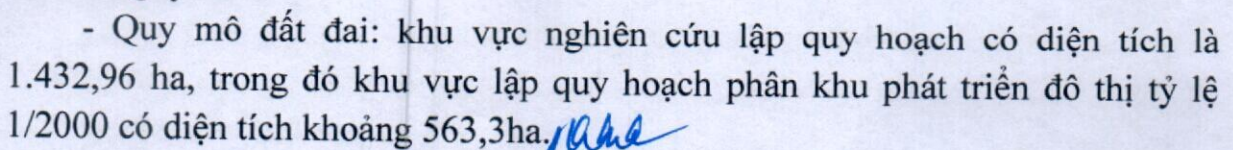 - Quy mô đất đai: khu vực nghiên cứu lập quy hoạch có diện tích là
1.432,96 ha, trong đó khu vực lập quy hoạch phân khu phát triển đô thị tỷ lệ
1/2000 có diện tích khoảng 563,3ha.